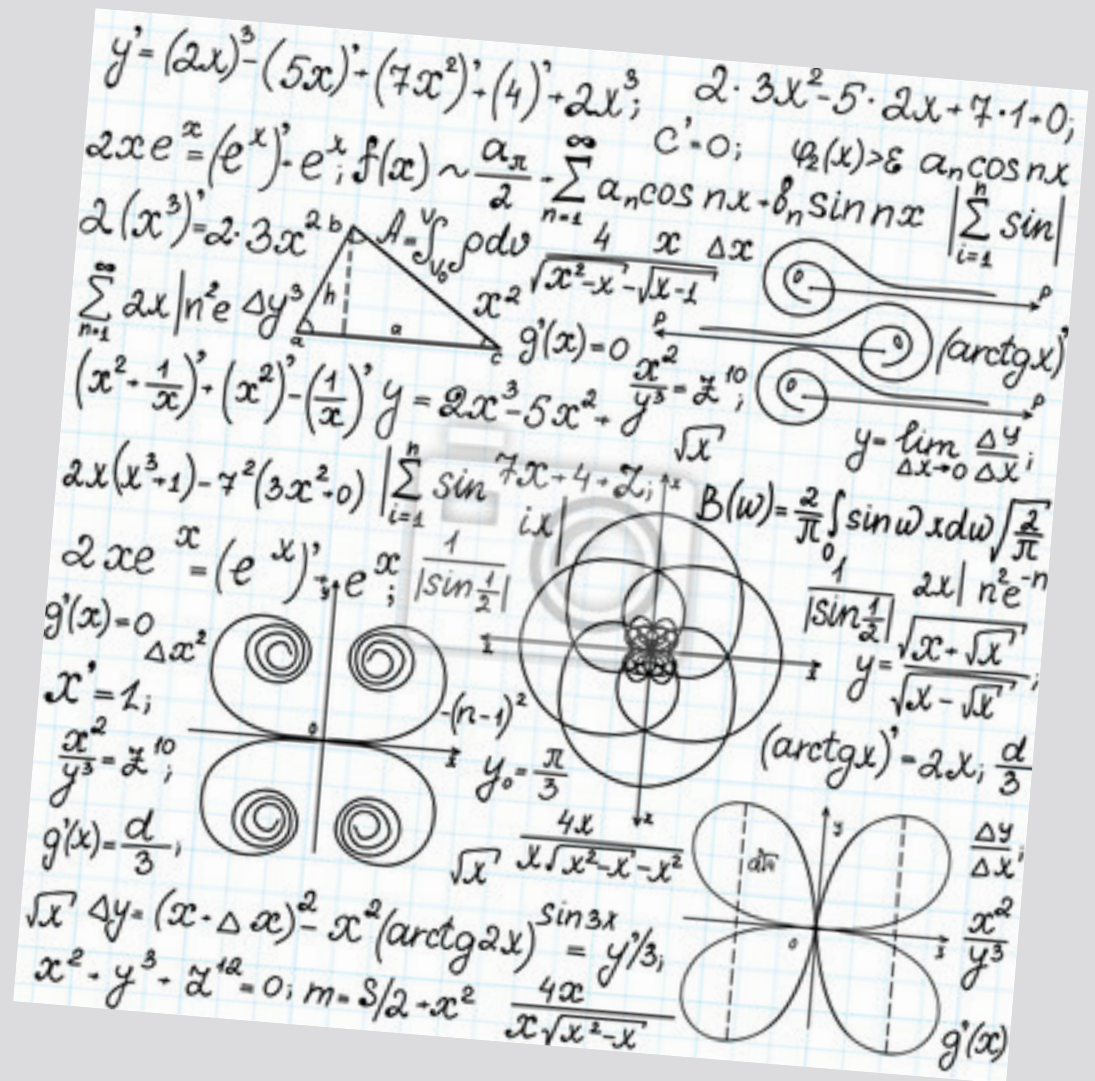 y'=(2x)³-(5x)'+(7x²)'+(4)'+2x³; 2·3x²-5·2x+7·1+0;
2xeˣ=(eˣ)'·eˣ; f(x)~aπ/2-∑ₙ₌₁^∞ aₙcos nx+bₙsin nx C'=0; φ₂(x)>ε aₙcos nx
2(x³)'=2·3x² b A=∫ᵥ₀ⱽ ρdv 4 x Δx |∑ᵢ₌₁ⁿ sin|
√x²-x-√x-1
∑ₙ₌₁^∞ 2x|n²e Δy³ h a a c x² g'(x)=0 0 P
P 0 (arctgx)'
(x²+1/x)'+(x²)'-(1/x)' y=2x³-5x²+ x²/y³=z¹⁰; 0 P
√x y=lim Δx→0 Δy/Δx;
2x(x³+1)-7²(3x²+0) |∑ᵢ₌₁ⁿ sin 7x+4+2; ix| x B(w)=2/π∫₀ sinw xdw√2/π
2xeˣ=(eˣ)'; eˣ; 1/|sin1/2| 1/|sin1/2| 2x| n²e⁻ⁿ
g'(x)=0 Δx² y=√x+√x/√x-√x;
x'=1; 0 -(n-1)²
x²/y³=z¹⁰; y₀=π/3 (arctgx)'=2x; d/3
g'(x)=d/3; √x 4x/x√x²-x-x² y Δy/Δx;
√x Δy=(x+Δx)²-x²(arctg2x)sin3x=y'/3; 0 x²/y³
x²+y³+z¹²=0; m=S/2+x² 4x/x√x²-x g'(x)